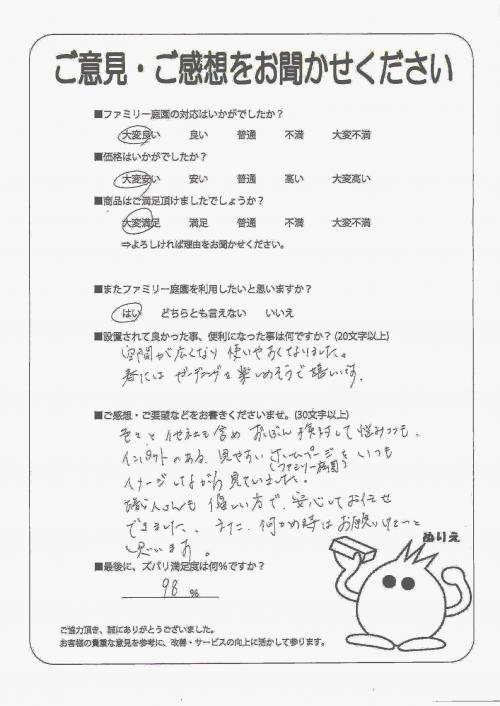 ご意見・ご感想をお聞かせください
■ファミリー庭園の対応はいかがでしたか?
大変良い 良い 普通 不満 大変不満
■価格はいかがでしたか?
大変安い 安い 普通 高い 大変高い
■商品はご満足頂けましたでしょうか?
大変満足 満足 普通 不満 大変不満
⇒よろしければ理由をお聞かせください。
■またファミリー庭園を利用したいと思いますか?
はい どちらとも言えない いいえ
■設置されて良かった事、便利になった事は何ですか?(20文字以上)
空間が広くなり 使いやすくなりました。
春にはガーデニングを楽しめそうで嬉しいです。
■ご感想・ご要望などをお書きくださいませ。(30文字以上)
色々と他社も含め ずいぶん検討して悩みつつも、
インパクトのある、見やすいホームページをいつも
(ファミリー庭園)
イメージしながら見ていました。
職人さんも優しい方で、安心してお任せ
できました、また、何かの時はお願いしたいと
思います。
ぬりえ
■最後に、ズバリ満足度は何%ですか?
98 %
ご協力頂き、誠にありがとうございました。
お客様の貴重な意見を参考に、改善・サービスの向上に活かして参ります。